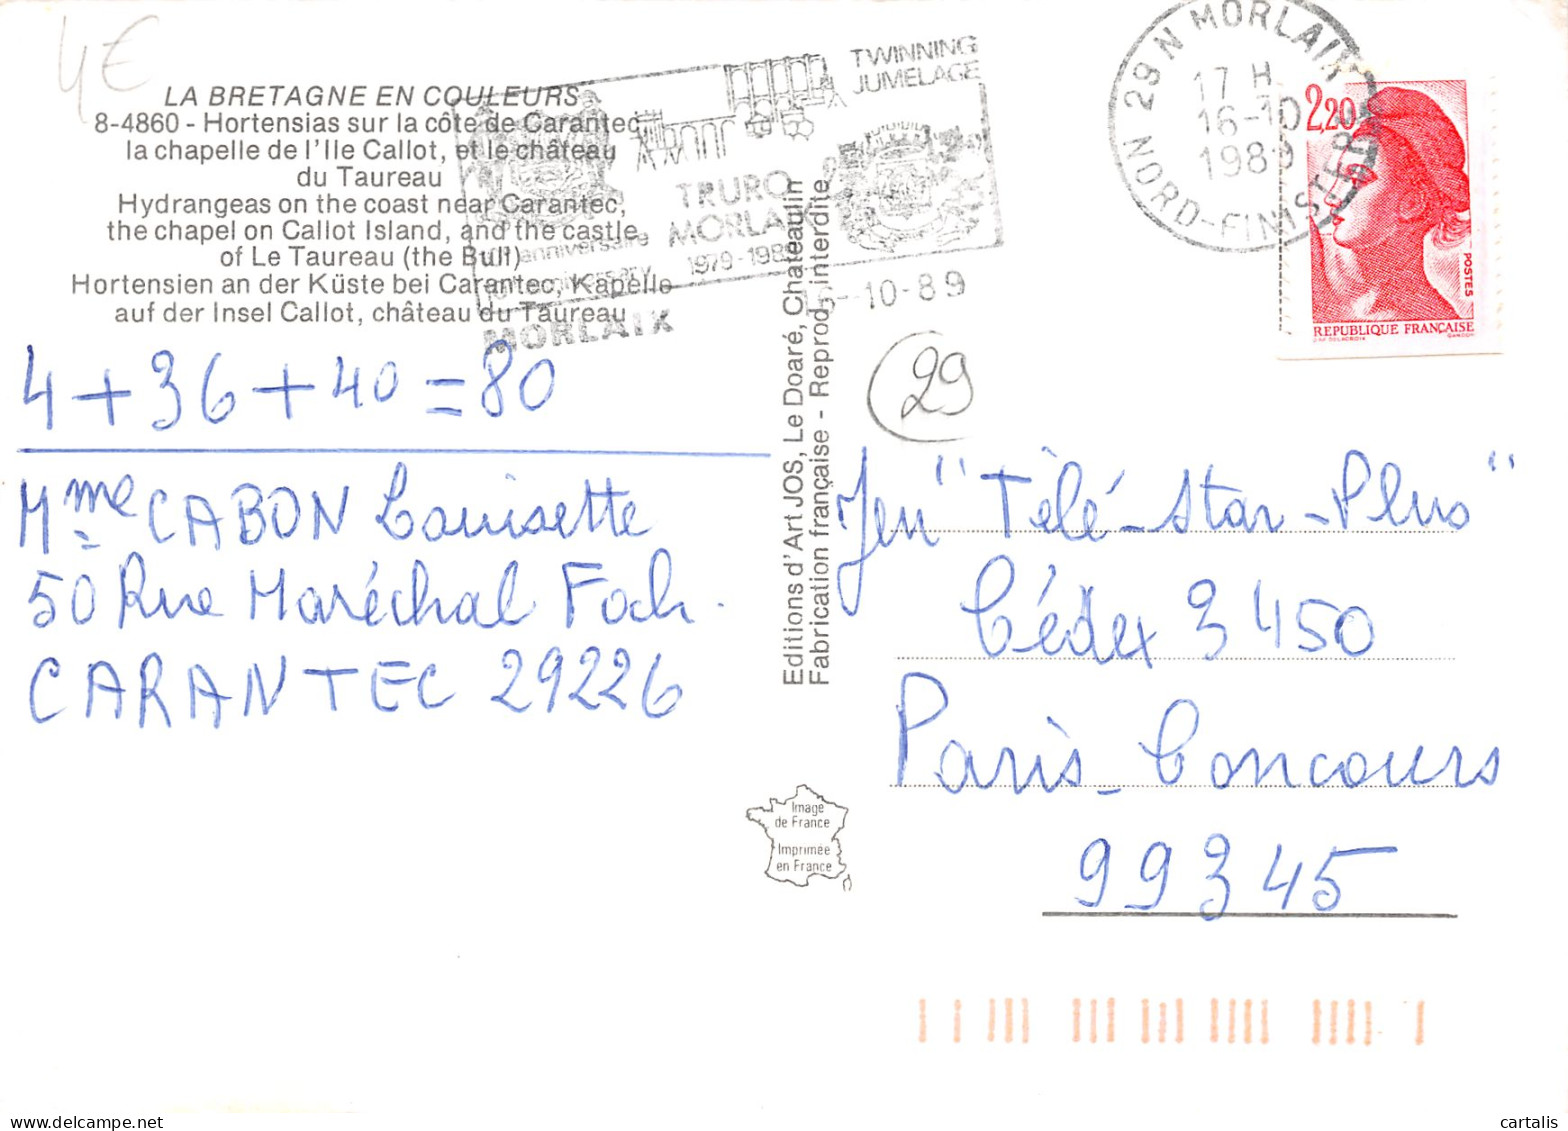 4€
LA BRETAGNE EN COULEURS
8-4860 - Hortensias sur la côte de Carantec,
la chapelle de l'Ile Callot, et le château
du Taureau
Hydrangeas on the coast near Carantec,
the chapel on Callot Island, and the castle
of Le Taureau (the Bull)
Hortensien an der Küste bei Carantec, Kapelle
auf der Insel Callot, château du Taureau
TWINNING
JUMELAGE
TRURO
MORLAIX
1979-1989
anniversaire
MORLAIX
29 N MORLAIX
17 H
16-10
1989
NORD-FINISTERE
16-10-89
2,20
POSTES
REPUBLIQUE FRANÇAISE
4 + 36 + 40 = 80
Mme CABON Louisette
50 Rue Maréchal Foch.
CARANTEC 29226
Editions d'Art JOS, Le Doaré, Chateaulin
Fabrication française - Reprod. interdite
29
Jeu "Télé-Star-Plus"
Cédex 3450
Paris-Concours
99345
Image
de France
Imprimée
en France
cartalis